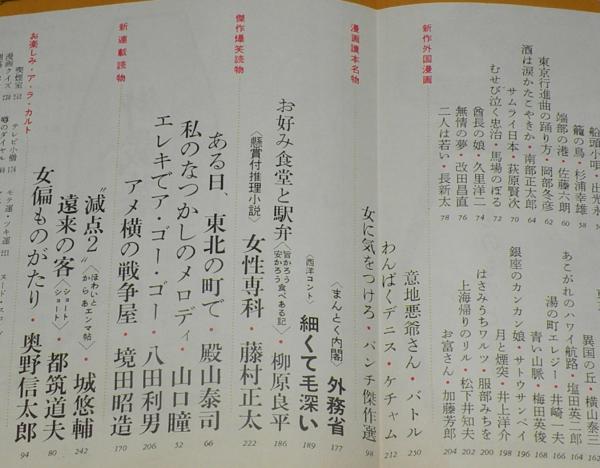 船頭小唄・出光永
籠の鳥・杉浦幸雄 58
端部の港・佐藤六朗 60
東京行進曲の踊り方・岡部冬彦 62
酒は涙かたこやきか・南部正太郎 64
サムライ日本・荻原賢次 70
むせび泣く忠治・馬場のぼる 72
酋長の娘・久里洋二 74
無情の夢・改田昌直 76
二人は若い・長新太 78
異国の丘・横山泰三 162
あこがれのハワイ航路・塩田英二郎 164
湯の町エレジー・井崎一夫 166
青い山脈・梅田英俊 168
銀座のカンカン娘・サトウサンペイ 196
月と煙突・井上洋介 198
はさみうちワルツ・服部みちを 200
上海帰りのリル・松下井知夫 202
お富さん・加藤芳郎 204
新作外国漫画
意地悪爺さん・バトル 250
わんぱくデニス・ケチャム 212
女に気をつけろ・パンチ傑作選 98
漫画讀本名物
〈まんとく内閣〉外務省 177
〈西洋コント〉細くて毛深い 189
お好み食堂と駅弁〈皆かろう安かろう食べある記〉・柳原良平 186
〈懸賞付推理小説〉女性専科・藤村正太 222
傑作爆笑読物
ある日、東北の町で・殿山泰司 66
私のなつかしのメロディ・山口瞳 52
エレキでア・ゴー・ゴー・八田利男 206
アメ横の戦争屋・境田昭造 170
新連載読物
〝減点2〟〈ほわいとからあエンマ帖〉・城悠輔 242
遠来の客〈ショートショート〉・都筑道夫 80
女偏ものがたり・奥野信太郎 94
お楽しみ・ア・ラ・カルト
テレビ小僧
噂のダイヤル
モテ運・ツキ運
喫煙室
漫画クイズ